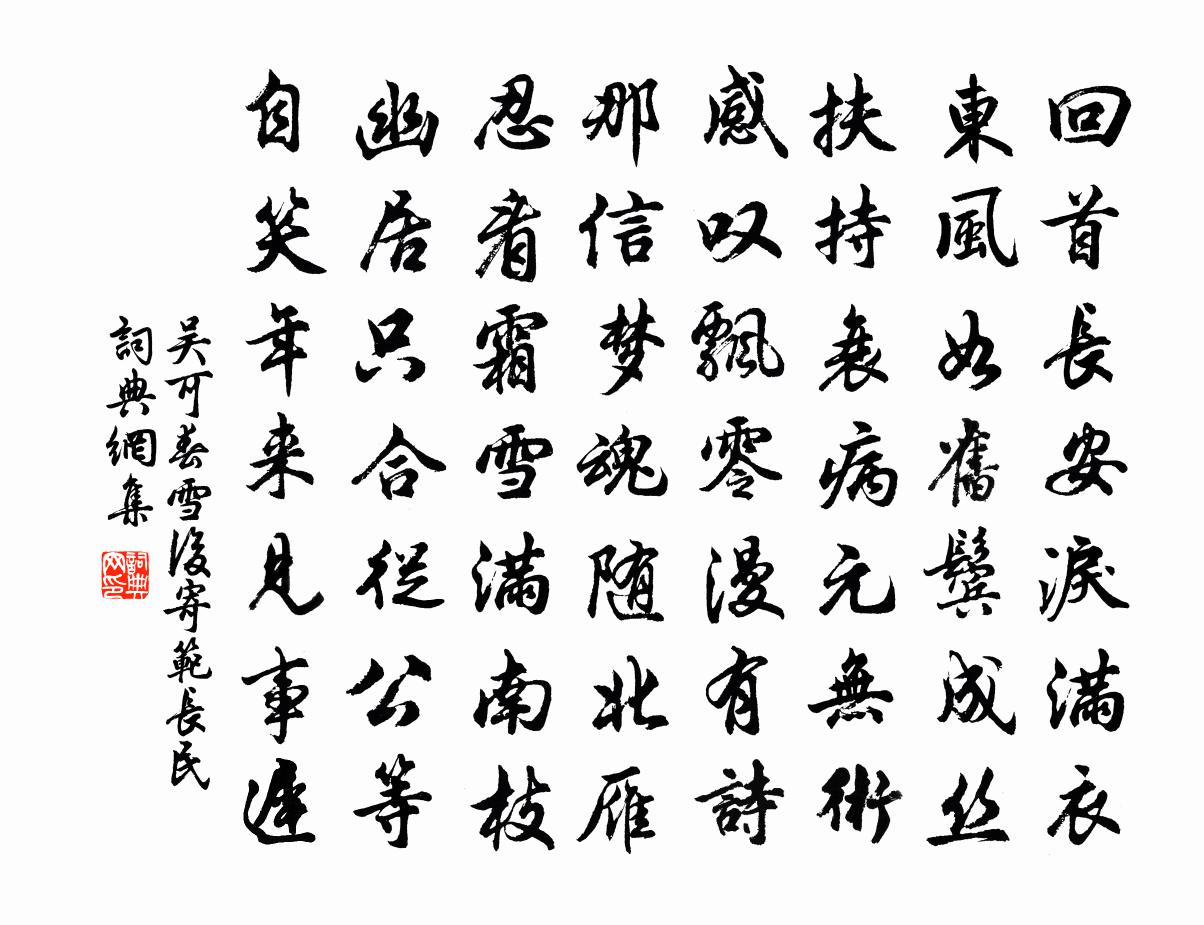 回首長安淚滿衣
東風如舊鬢成丝
扶持衰病元無術
感叹飄零漫有詩
那信梦魂随北雁
忍看霜雪满南枝
幽居只合從公等
自笑年来見事遲
吴可春雪後寄範長民
詞典網集
詞典网印